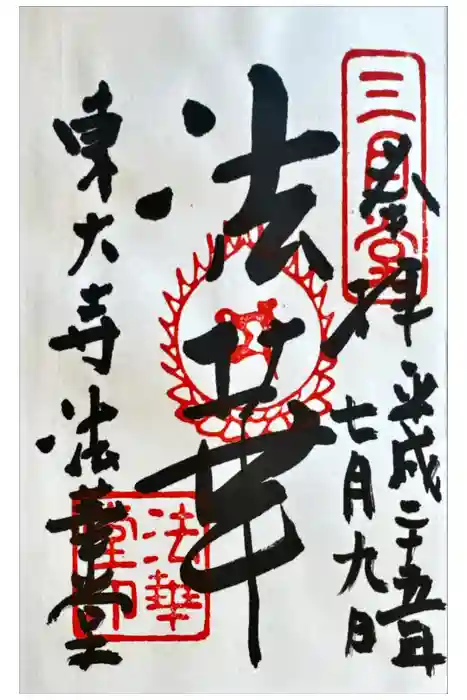 奉拝
平成二十五年
七月九日
法華
東大寺法華堂
三月堂
法華堂印